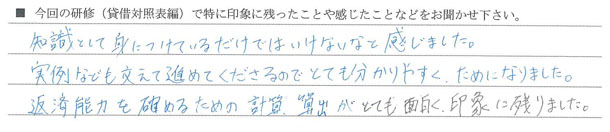 ■ 今回の研修(貸借対照表編)で特に印象に残ったことや感じたことなどをお聞かせ下さい。
知識として身につけているだけではいけないなと感じました。
実例なども交えて進めてくださるのでとても分かりやすく、ためになりました。
返済能力を確めるための計算、算出がとても面白く、印象に残りました。